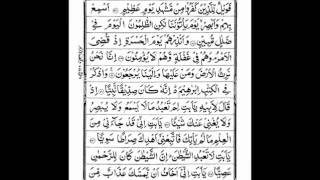 فَوَيْلٌ لِّلَّذِيْنَ كَفَرُوْا مِنْ مَّشْهَدِ يَوْمٍ عَظِيْمٍ ۝ اَسْمِعْ
بِهِمْ وَاَبْصِرْ يَوْمَ يَاْتُوْنَنَا لٰكِنِ الظّٰلِمُوْنَ الْيَوْمَ فِيْ
ضَلٰلٍ مُّبِيْنٍ ۝ وَاَنْذِرْهُمْ يَوْمَ الْحَسْرَةِ اِذْ قُضِيَ
الْاَمْرُ وَهُمْ فِيْ غَفْلَةٍ وَّهُمْ لَا يُؤْمِنُوْنَ ۝ اِنَّا نَحْنُ
نَرِثُ الْاَرْضَ وَمَنْ عَلَيْهَا وَاِلَيْنَا يُرْجَعُوْنَ ۝ وَاذْكُرْ
فِي الْكِتٰبِ اِبْرٰهِيْمَ اِنَّهٗ كَانَ صِدِّيْقًا نَّبِيًّا ۝ اِذْ
قَالَ لِاَبِيْهِ يٰٓاَبَتِ لِمَ تَعْبُدُ مَا لَا يَسْمَعُ وَلَا يُبْصِرُ
وَلَا يُغْنِيْ عَنْكَ شَيْئًا ۝ يٰٓاَبَتِ اِنِّيْ قَدْ جَآءَنِيْ مِنَ
الْعِلْمِ مَا لَمْ يَاْتِكَ فَاتَّبِعْنِيْٓ اَهْدِكَ صِرَاطًا سَوِيًّا ۝
يٰٓاَبَتِ لَا تَعْبُدِ الشَّيْطٰنَ اِنَّ الشَّيْطٰنَ كَانَ لِلرَّحْمٰنِ
عَصِيًّا ۝ يٰٓاَبَتِ اِنِّيْٓ اَخَافُ اَنْ يَّمَسَّكَ عَذَابٌ مِّنَ